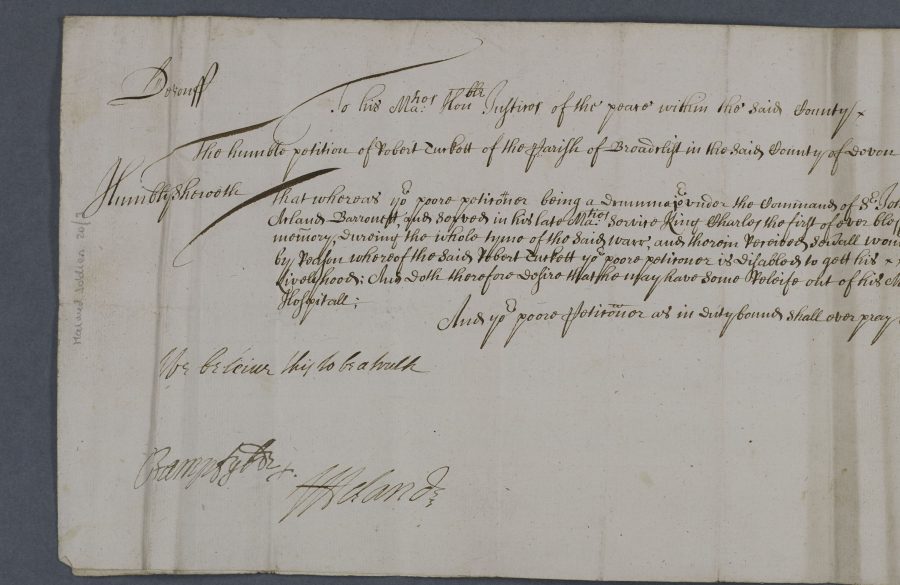 Devonss
To his Maties Honble Justices of the peace within the said County
The humble petition of Robert Turkett of the Parish of Broadclist in the said County of Devon
Humbly sheweth
That whereas yor poore petitioner being a drummer under the Commands of Sr
Acland Barronett, and served in his late Maties service King Charles the first of ever
memory, dureing the whole tyme of the said warr, and therein Received severall
by Reason whereof the said Robert Turkett yor poore petitioner is disabled to gett his
livelyhood; And doth therefore desire that he may have some Releife out of his
Hospitall;
And yor poore Petitioner as in duty bound shall ever pray
We beleive this to be a truth
Maimed Soldiers 26/3